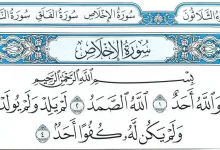 سُورَةُ الإِخْلَاصِ سُورَةُ الفَلَقِ الثَّلَاثُونَ
سُورَةُ الإِخْلَاصِ
بِسْمِ اللَّهِ الرَّحْمَٰنِ الرَّحِيمِ
اللَّهُ أَحَدٌ ١ اللَّهُ الصَّمَدُ ٢ لَمْ يَلِدْ وَلَمْ يُولَدْ
وَلَمْ يَكُن لَّهُۥ كُفُوًا أَحَدٌۢ ٤